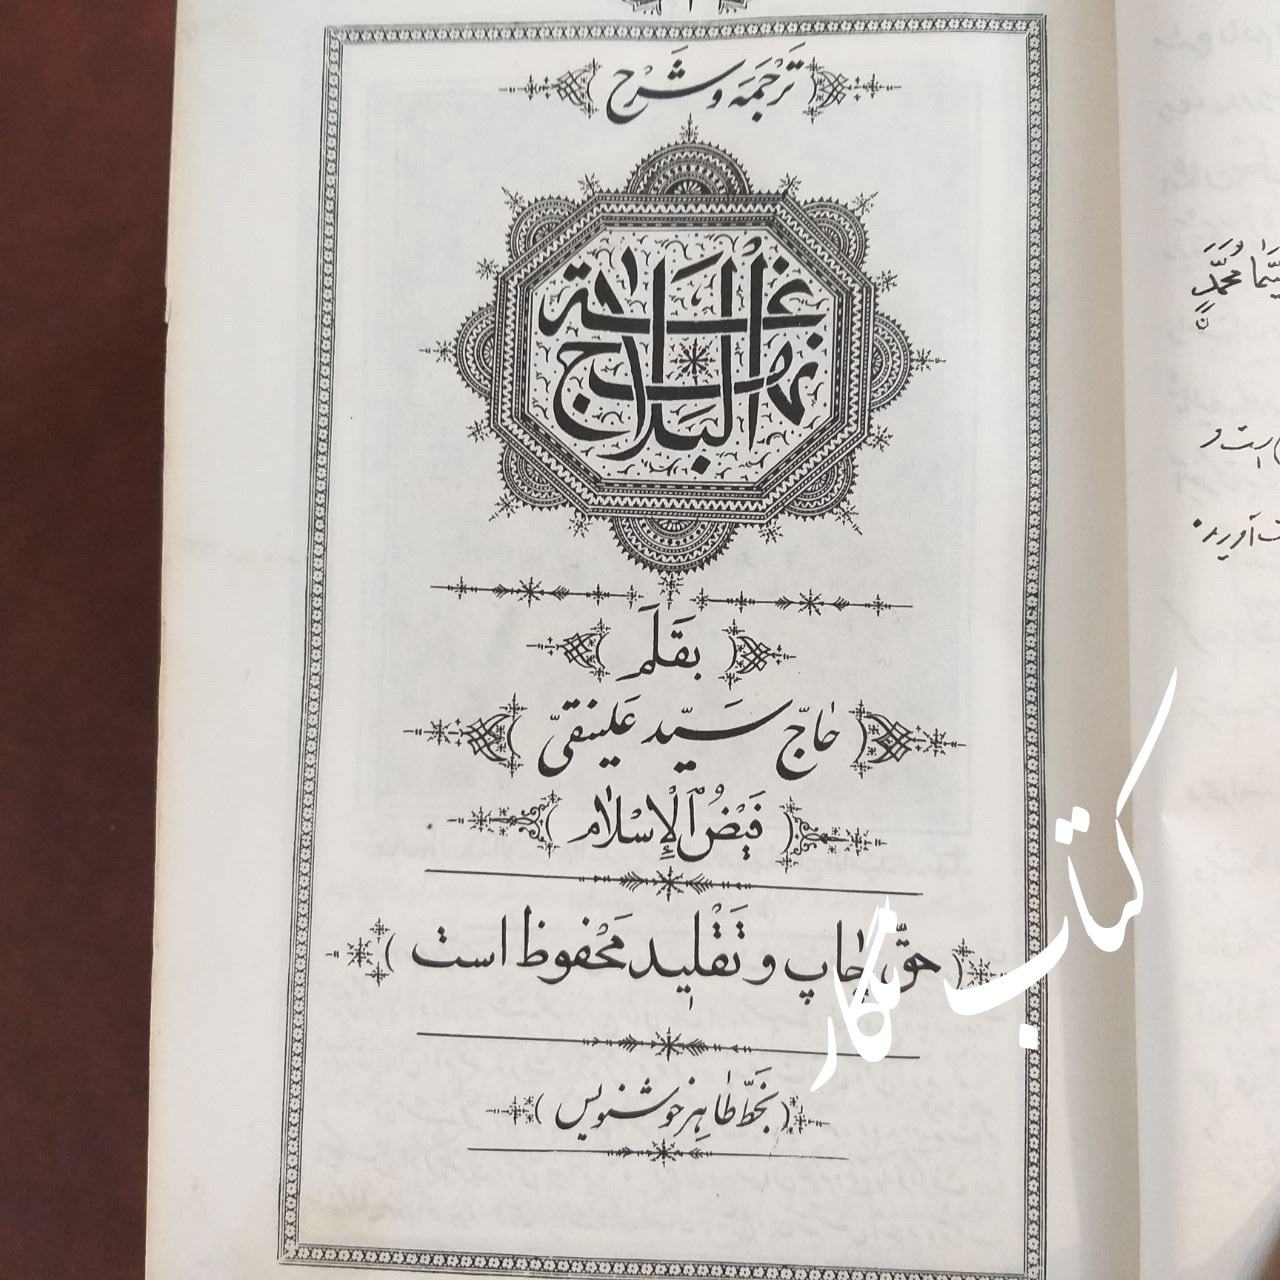 ترجمه و شرح
نهج البلاغة
بقلم
حاجّ سیّد علینقیّ
فیض الإسلام
حقّ چاپ و تقلید محفوظ است
(بخطّ طاهر خوشنویس)
کتاب نگار
محمّدٍ
است و
آورید.